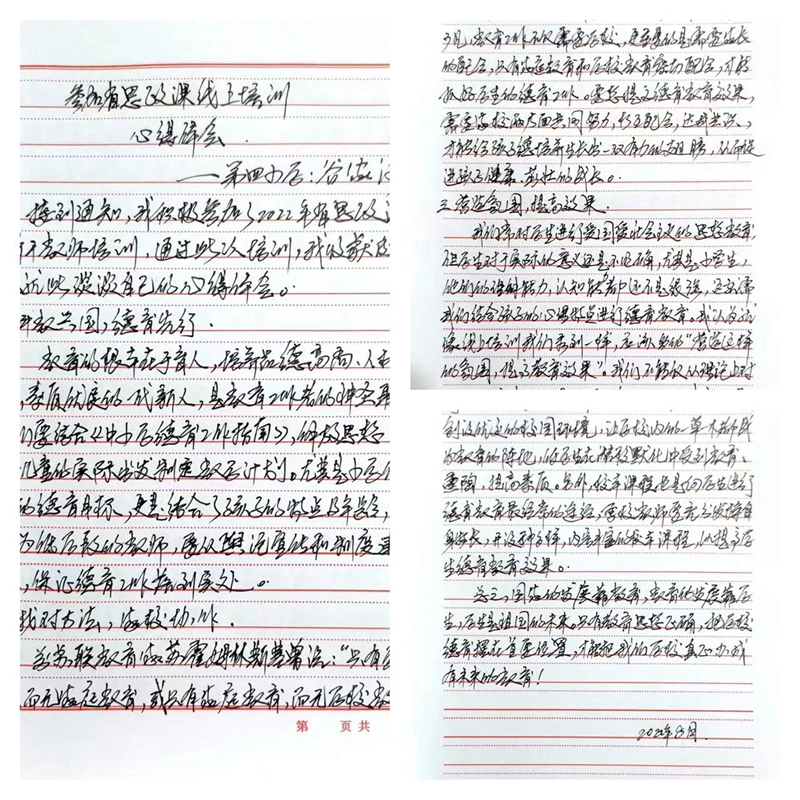 参加省思政课线上培训
心得体会
——第四小学：谷
接到通知，我积极参加了2022年省思政
教师培训，通过此次培训，我收获
就此谈谈自己的心得体会。
教兴国，德育先行
教育的根本在于育人，培养品德高尚、人
素质优良的一代新人，是教育工作者的神圣
们要结合《中小学德育工作指南》，体技思想
儿童的实际出发制定教学计划。尤其是小学
的德育目标，更是结合了孩子的特点及年龄，
为低年级的教师，要从舆论宣传和制度
，保证德育工作落到实处。
找对方法，家校协作。
前苏联教育家苏霍姆林斯基曾说：“只有
而无家庭教育，或只有家庭教育，而无学校教
第 页 共
可见，教育工作不仅需要学校，更重要的是需要家长
的配合，只有家庭教育和学校教育密切配合，才能
抓好学生的德育工作。要想提高德育教育效果，
需要家校两方面共同努力，相互配合，达成共识，
才能给孩子德培养生长出一双有力的翅膀，从而促
进孩子健康、茁壮的成长。
三、营造氛围，提高效果。
我们常对学生进行爱国爱社会主义的思想教育，
但学生对于实际的意义还是不明确，尤其是小学生，
他们的理解能力，认知能力都还不是很强，还需要
我们结合孩子的心理特点进行德育教育。我认为就
像线上培训我们看到一样，应该多的“营造这样
的氛围，提高教育效果”。我们不能仅从理论上对
创设优美的校园环境，让学校内的一草一木都成
为教育的阵地，使学生在潜移默化中受到教育、
熏陶，提高素质。另外，校本课程也是向学生进行
德育教育最经常的途径，学校教师应充分发挥自
身特长，开设多种多样，内容丰富的校本课程，以提高学
生德育教育效果。
总之，国家的发展靠教育，教育的发展靠学
生，学生是祖国的未来。只有教育思想正确，把学校
德育摆在首要位置，才能把我们的学校真正办成
有未来的教育！
2022年8月